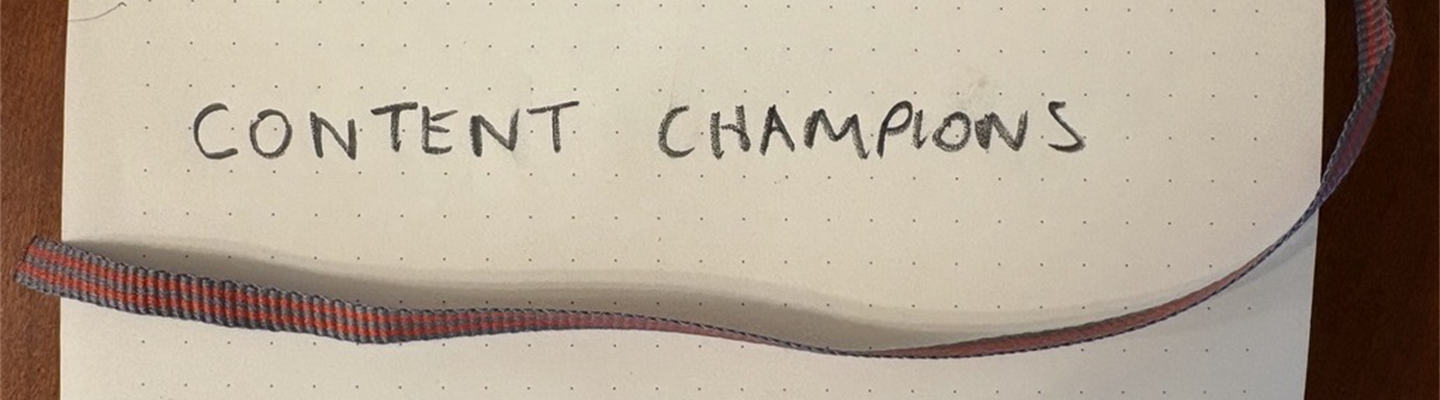 CONTENT CHAMPIONS